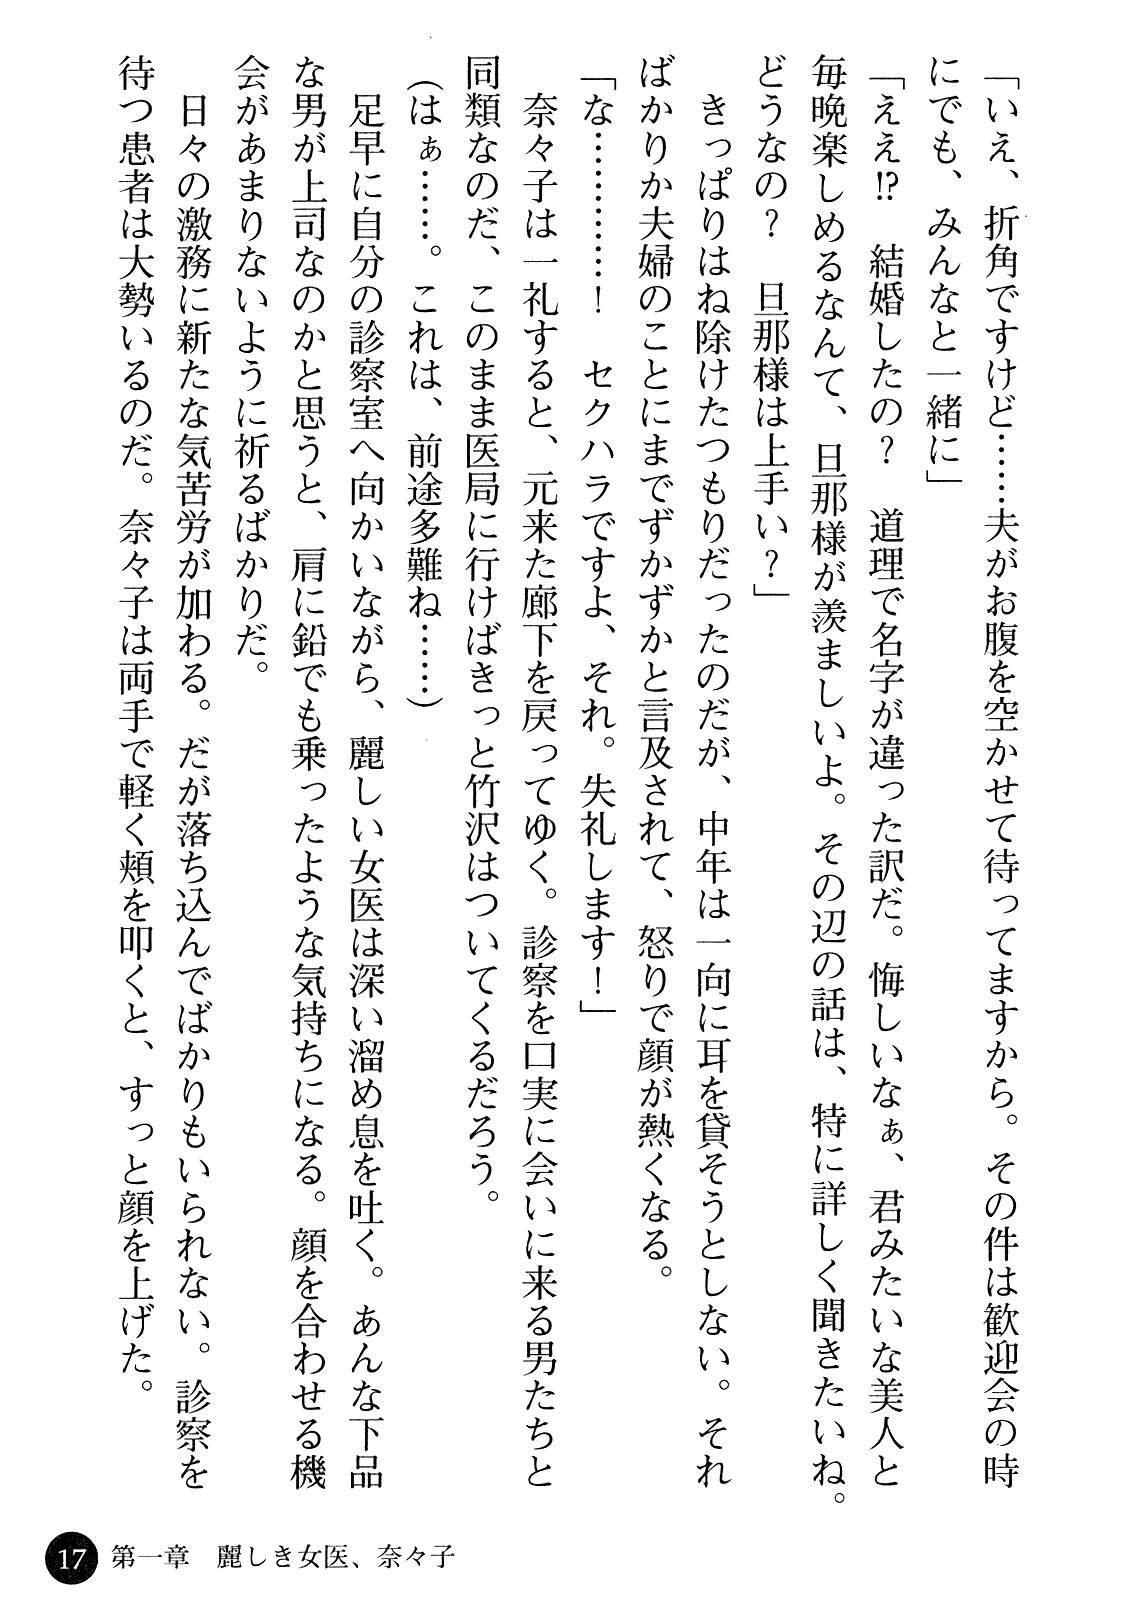 「いえ、折角ですけど……夫がお腹を空かせて待ってますから。その件は歓迎会の時
にでも、みんなと一緒に」
「ええ⁉　結婚したの？　道理で名字が違った訳だ。悔しいなぁ、君みたいな美人と
毎晩楽しめるなんて、旦那様が羨ましいよ。その辺の話は、特に詳しく聞きたいね。
どうなの？　旦那様は上手い？」
　きっぱりはね除けたつもりだったのだが、中年は一向に耳を貸そうとしない。それ
ばかりか夫婦のことにまでずかずかと言及されて、怒りで顔が熱くなる。
「な…………！　セクハラですよ、それ。失礼します！」
　奈々子は一礼すると、元来た廊下を戻ってゆく。診察を口実に会いに来る男たちと
同類なのだ、このまま医局に行けばきっと竹沢はついてくるだろう。
（はぁ……。これは、前途多難ね……）
　足早に自分の診察室へ向かいながら、麗しい女医は深い溜め息を吐く。あんな下品
な男が上司なのかと思うと、肩に鉛でも乗ったような気持ちになる。顔を合わせる機
会があまりないように祈るばかりだ。
　日々の激務に新たな気苦労が加わる。だが落ち込んでばかりもいられない。診察を
待つ患者は大勢いるのだ。奈々子は両手で軽く頬を叩くと、すっと顔を上げた。
17 第一章　麗しき女医、奈々子